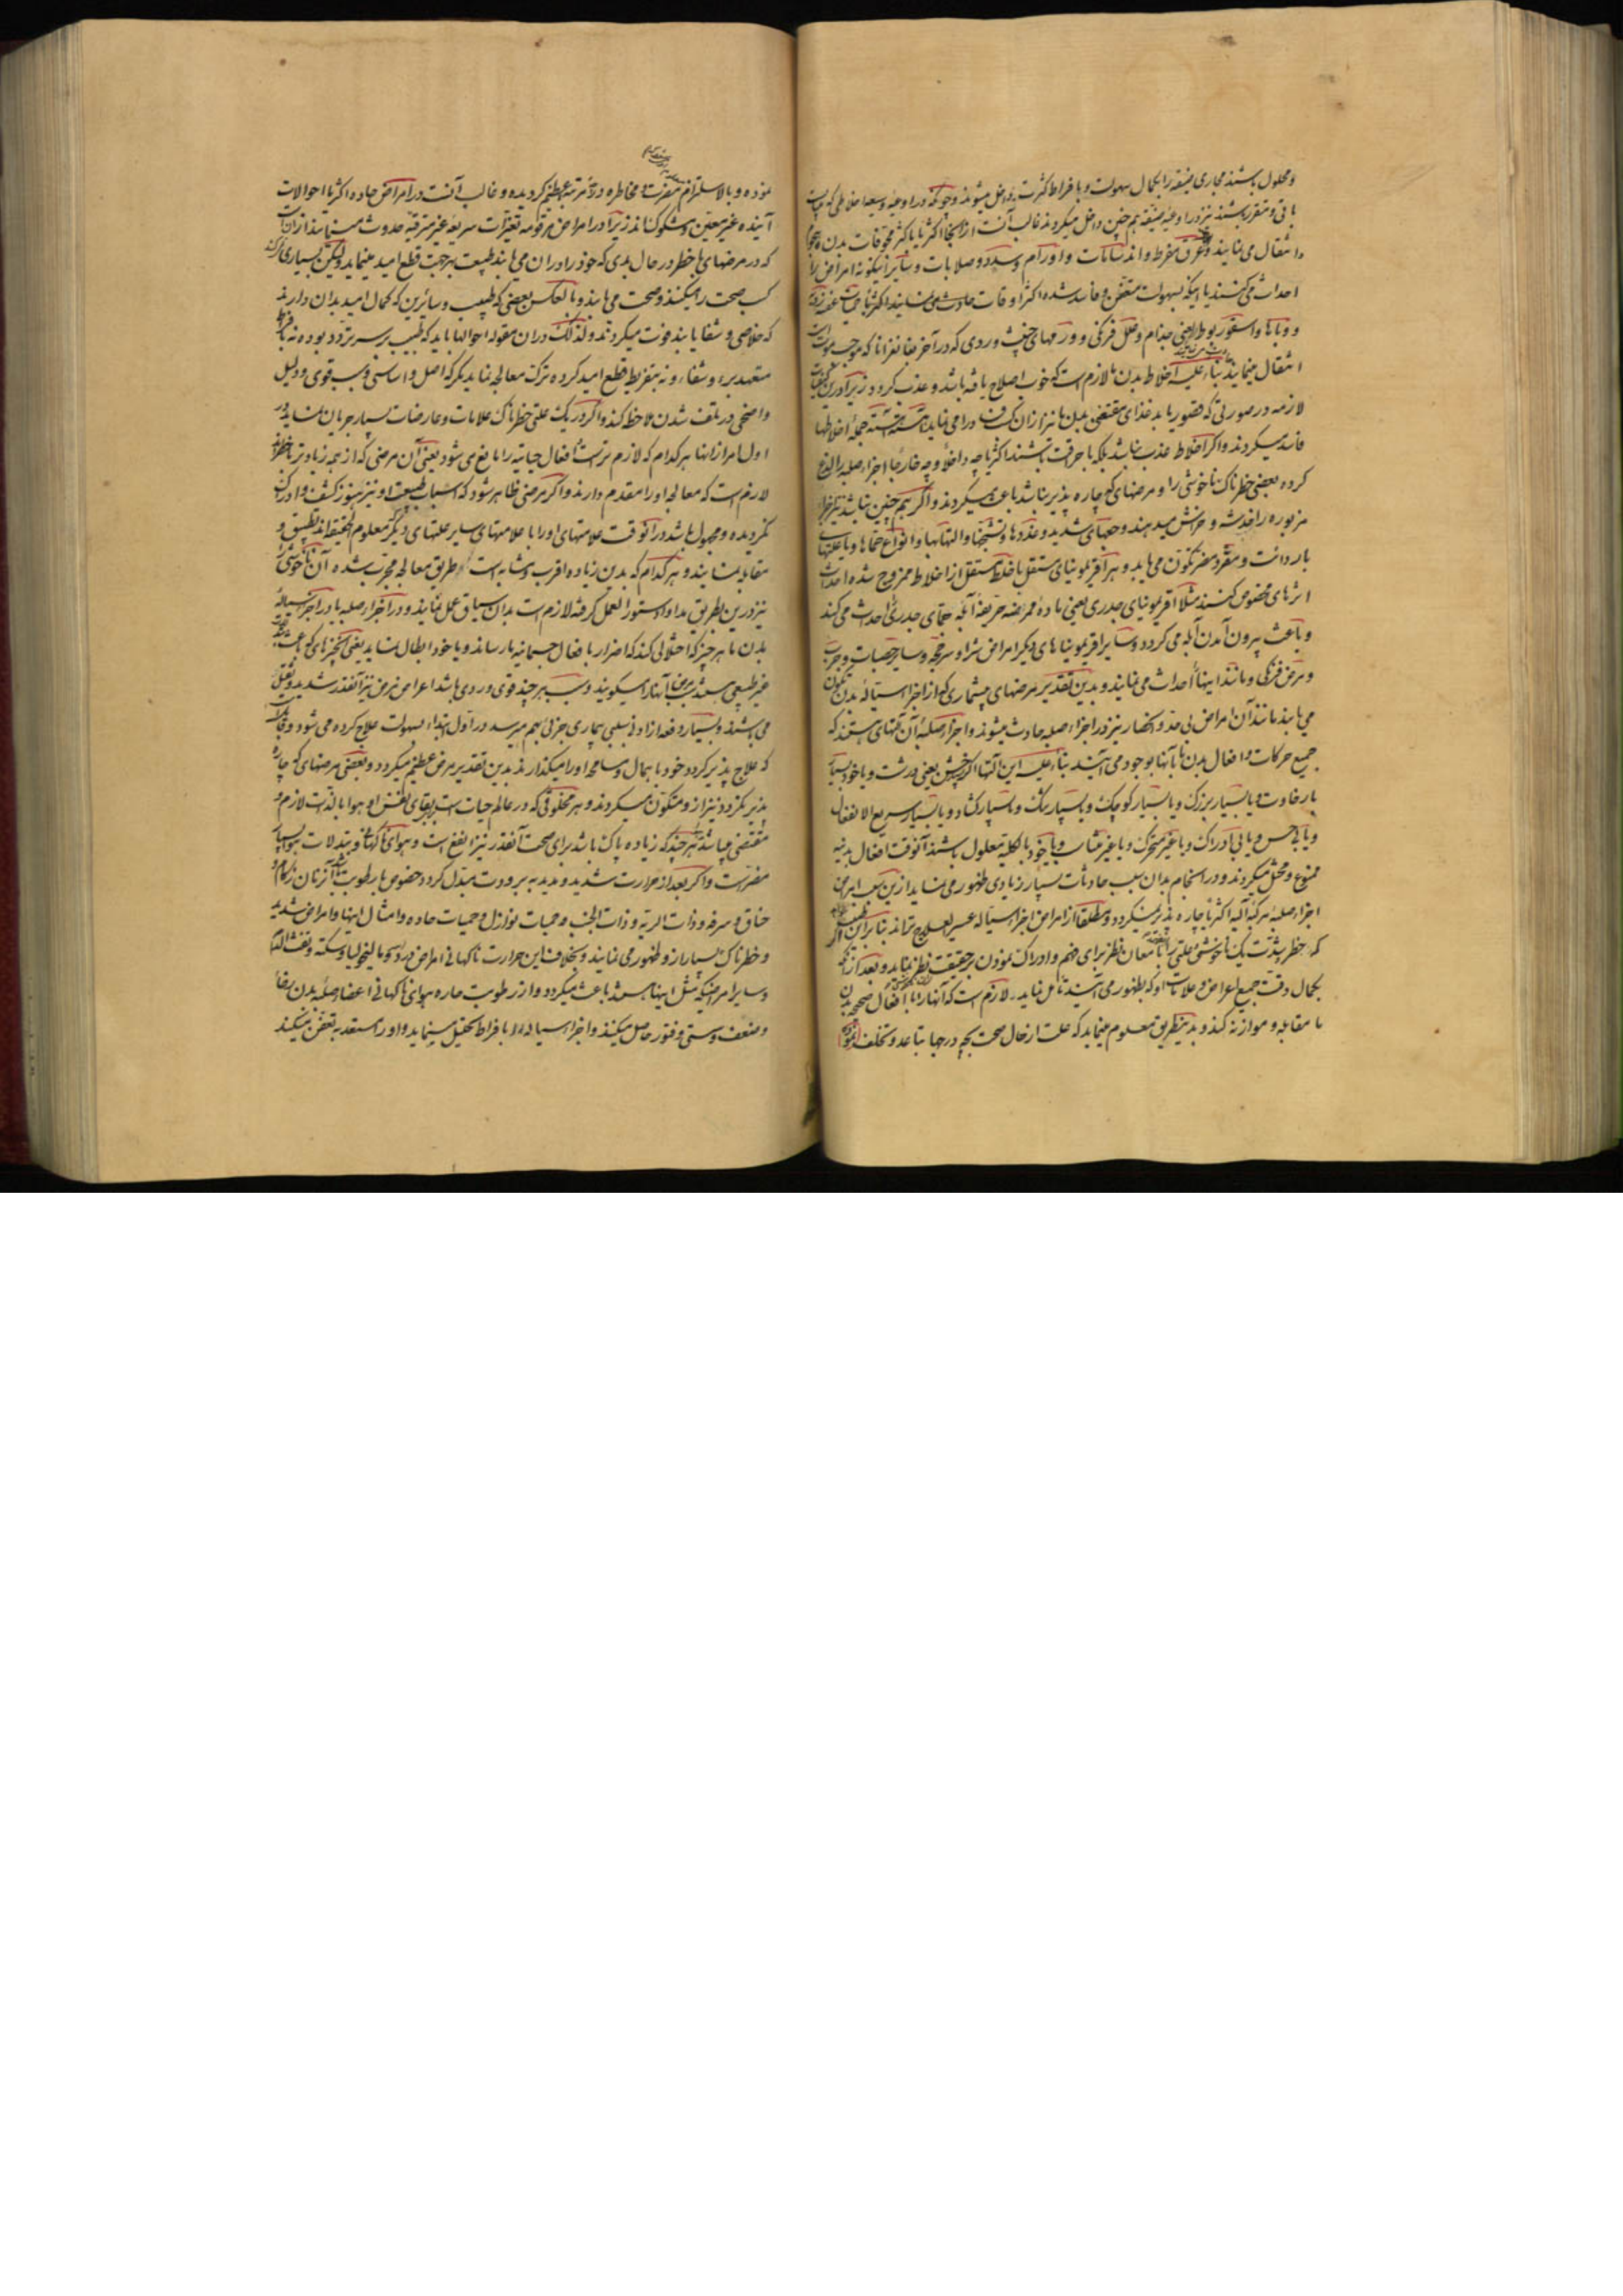 و محلول باشند مجاری ضیقه را بکمال سهولت و با فراط کثرت داخل میشوند و چونکه در اوعیهٔ وسیعه اخلاطی که
باقی و متقرر باشند نیز در اوعیهٔ ضیقه هم چنین داخل میکردند غالب آنست از اینجا اکثریا باکثر مجوفات بدن
و انتقال می نمایند و عرق مفرط و اندمانات و اورام و سدد و صلابات و سایر اینکونه امراض را
احداث می کنند یا اینکه بسهولت متعفن و فاسد شده اکثر اوقات حادث می نمایند اکثریا حمیات عفنه
و وباها و اسقوربوط یعنی جذام و علل فرنکی و ورمهای خبیث و ردی که در آخر بغانغرانا که موجب موتست
انتقال مینمایند بناء علیه اخلاط بدن را لازم است که خوب اصلاح یافته باشد و عذب کردد زیرا
لازمه در صورتی که قصور یابد غذای مقتضی بدن را نیز از آن کسان در امی نماید آهسته آهسته جمله اخلاطها
فاسد میکردند و اکر اخلاط عذب نباشد بلکه با حرقت باشند اکثریا چه داخلا و چه خارجا اجزاء صلبه را لذع
کرده بعضی خطرناک ناخوشی را و مرضهای که چاره پذیر نباشد باعث میکردند و اکر هم چنین نباشد نیز اجزاء
مزبوره را خدشه و خراش میدهند و جعهای شدید و غددها و تشنجها و التهابها و انواع حماها و یا علتهای
باردانت و مقرد مضر تکون می یابد و هر آقریمونیای مستقل با خلط مستقل از اخلاط ممزوج شده احداث
اثرهای مخصوص کنند مثلا اقریمونیای جدری یعنی مادهٔ ممرضه حریفهٔ آبله حمای جدری احداث می کند
و باعث بیرون آمدن آبله می کردد و سایر اقریمونیاهای دیکر امراض شرا و سرخجه و سایر حصبات و جرب
و مرض فرنکی و مانند اینها احداث می نمایند و بدین تقدیر مرضهای بیشماری که از اجزاء سیالهٔ بدن تکون
می یابند مانند آن امراض بی حد و انحصار نیز در اجزاء صلبه حادث میشوند و اجزاء صلبهٔ آن آلتهای هستند که
جمیع حرکات و افعال بدن ما بآنها بوجود می آیند بناء علیه این آلتها اکر خشن یعنی درشت و یا خود بسیار
با رخاوت و یا بسیار بزرک و یا بسیار کوچک و یا بسیار تنک و یا بسیار کشاد و یا بسیار سریع الانفعال
و یا بی حس و یا بی ادراک و یا غیر متحرک و یا غیر متناسب و یا خود بالکلیه معلول باشند آنوقت افعال بدنیه
ممنوع و مختل میکردند و در انجام بدان سبب حادثات بسیار زیادی ظهور می نماید ازین سبب امراض
اجزاء صلبه هر کاه آلیه اکثریا چاره پذیر نمیکردد و مطلقا از امراض اجزاء سیاله عسیر العلاج تراند بنا برین طبیب
که خطر بشدت یک ناخوشی و علتی را بامعان نظر برای فهم و ادراک نمودن بر حقیقت نظر نماید و بعد از آنکه
بکمال دقت جمیع اعراض و علامات او که بظهور می آیند تأمل نماید لازم است که آنها را با افعال صحیح بدن
ما مقابله و موازنه کند و بدینطریق معلوم مینماید که علت از حال صحت بچه درجها تباعد و تخلف
نموده و بالاستلزام مضرت و مخاطره و در چه مرتبه عظیم کردیده و غالب آنست در امراض حاده اکثریا احوالات
آینده غیر معین و مشکوک اند زیرا در امراض مرقومه تغیرات سریعهٔ غیر مترقبه حدوث مینمایند
که در مرضهای با خطر در حال بدی که خود را در آن می یابند طبیعت بهر جهت قطع امید مینماید ولیکن بسیاری
کسب صحت را میکنند و صحت می یابند و بالعکس بعضی که طبیب و سائرین که کمال امید بدان دارند
که خلاصی و شفا یابند فوت میکردند و لذلک در آن مقوله احوالها باید که طبیب بر سر تردد بوده نه
متعهد برء و شفاء و نه بتفریط قطع امید کرده ترک معالجه نماید مکر که اصل و اساسی و سبب قوی و دلیل
واضحی در تلف شدن ملاحظه کند و اکر در یک علتی خطرناک علامات و عارضات بسیار جریان نماید در
اول امر از آنها هر کدام که لازم تر است افعال حیاتیه را مانع می شود یعنی آن مرضی که از همه زیادتر با خطر
لازم است که معالجه او را مقدم دارند و اکر مرضی ظاهر شود که اسباب طبیعت او نیز هنوز کشف و ادراک
نکردیده و مجهول باشد در آنوقت علامتهای او را با علامتهای سایر علتهای دیکر معلوم الحقیقه اند تطبیق و
مقابله نمایند و هر کدام که بدن زیاده اقرب و مشابه است و طریق معالجه مجرب شده آن ناخوشی را
نیز درین طریق مداوا دستور العمل کرفته لازم است بدان سیاق عمل نمایند و در اجزاء صلبه یا در اجزاء سیالهٔ
بدن ما هر چیز که اختلالی کند که اضرار با فعال جسمانیه بارساند و یا خود ابطال نماید یعنی آنچیزهای که
غیر طبیعی باشند سبب مرض آنها را میکویند و سبب هر چند قوی و ردی باشد اعراض مرض نیز آنقدر شدید و ثقیل
می باشند و بسیار دفعه از ادنی سببی بیماری جزئی بهم میرسد در اول ابتداء بسهولت علاج کرده می شود و
که علاج پذیر کردد خود با همال و مسامحه او را میکذارند بدین تقدیر مرض عظیم میکردد و بعضی مرضهای که چاره
پذیر نکردد نیز از و متکون میکردند و هر مخلوقی که در عالم حیات است ببقای نفس او هوا بالذات لازم و
مقتضی میباشد هر چند که زیاده پاک باشد برای صحت آنقدر نیز انفع است و هوای ناکهانی و تبدلات هوا بسیار
مضر است و اکر بعد از حرارت شدید و مدید به برودت مبدل کردد خصوص با رطوبت باشد آنزمان زکام و
خناق و سرفه و ذات الریه و ذات الجنب و حمیات نوازل و حمیات حاده و امثال اینها و امراض شدید
و خطرناک بسیار از و ظهور می نمایند و بخلاف این حرارت ناکهانی امراض درد سر و مالیخولیا و سکته و نفث الدم
و سایر امراضیکه مثل اینها باشند باعث میکردد و از رطوبت حاره هوای ناکهانی اعضا صلبهٔ بدن
و ضعف و سستی و فتور حاصل میکنند و اجزاء سیاله را با فراط تحلیل مینماید و او را مستعد به تعفن میکند